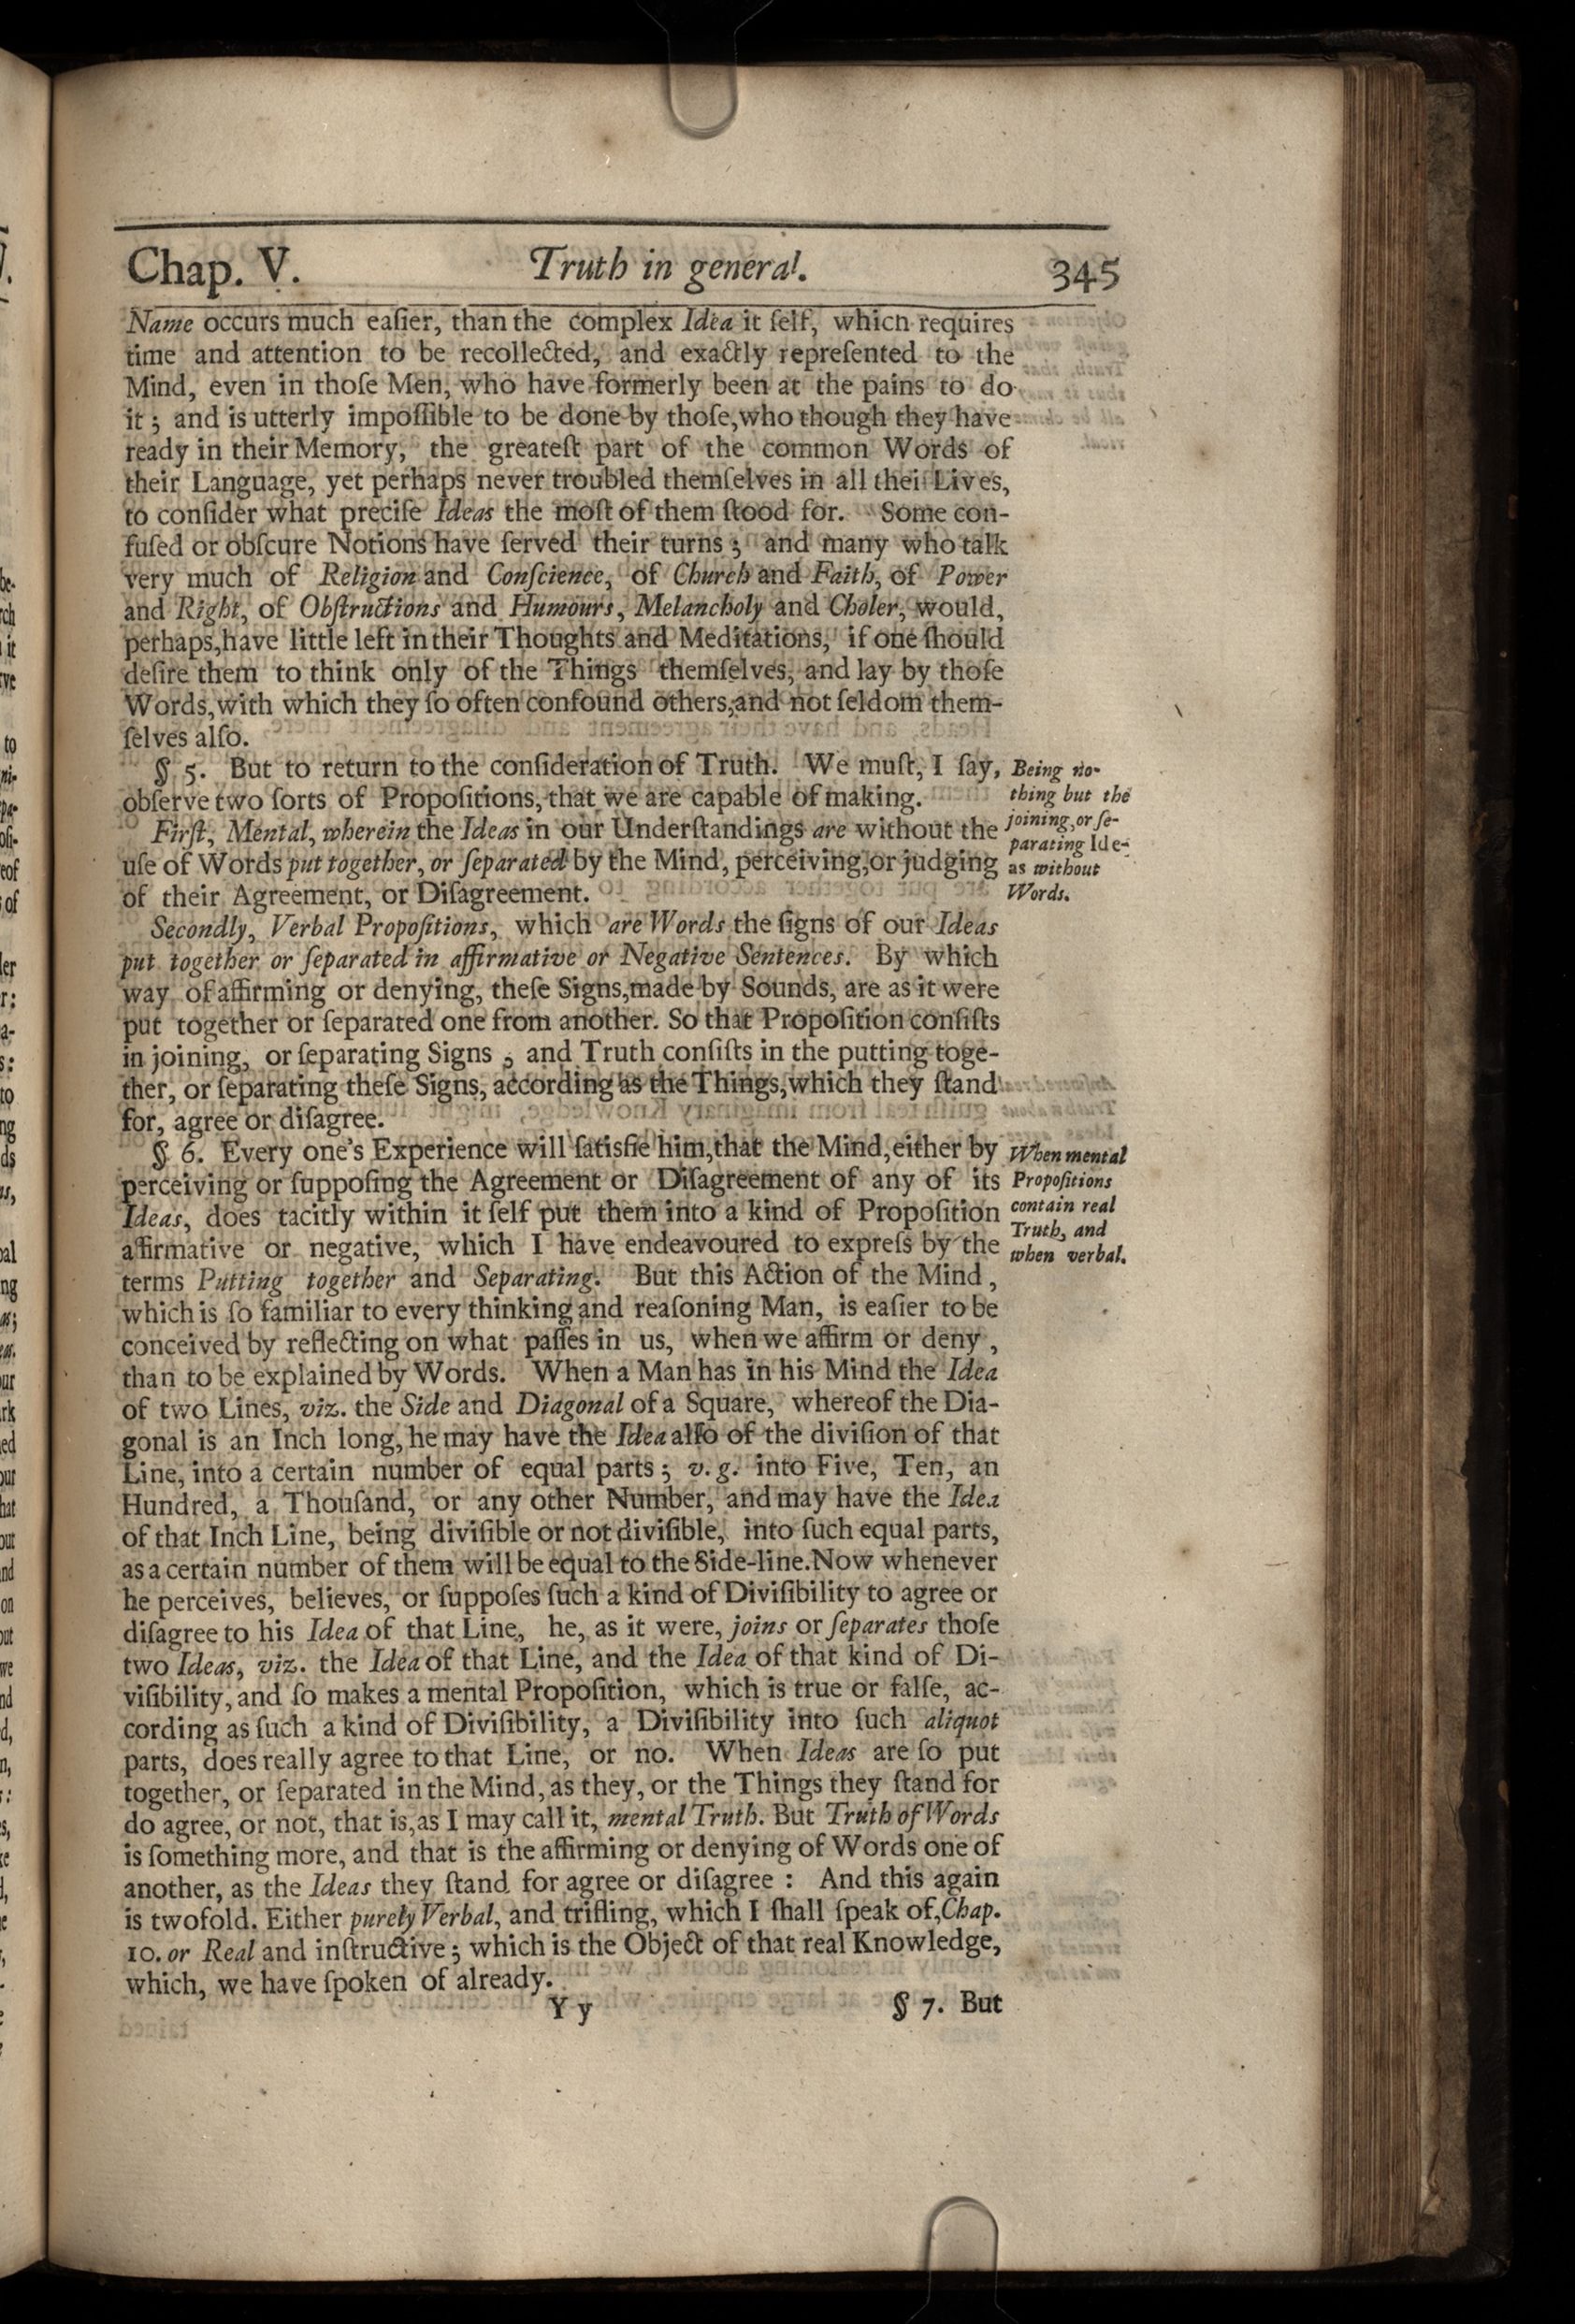 Chap. V. Truth in general. 345
Name occurs much eaſier, than the complex Idea it ſelf, which requires
time and attention to be recollected, and exactly repreſented to the
Mind, even in thoſe Men, who have formerly been at the pains to do
it; and is utterly impoſſible to be done by thoſe, who though they have
ready in their Memory, the greateſt part of the common Words of
their Language, yet perhaps never troubled themſelves in all their Lives,
to conſider what preciſe Ideas the moſt of them ſtood for. Some con-
fuſed or obſcure Notions have ſerved their turns; and many who talk
very much of Religion and Conſcience, of Church and Faith, of Power
and Right, of Obſtructions and Humours, Melancholy and Choler, would,
perhaps, have little left in their Thoughts and Meditations, if one ſhould
deſire them to think only of the Things themſelves, and lay by thoſe
Words, with which they ſo often confound others, and not ſeldom them-
ſelves alſo.
§ 5. But to return to the conſideration of Truth. We muſt, I ſay,
obſerve two ſorts of Propoſitions, that we are capable of making.
Firſt, Mental, wherein the Ideas in our Underſtandings are without the
uſe of Words put together, or ſeparated by the Mind, perceiving, or judging
of their Agreement, or Diſagreement.
Being no-
thing but the
joining, or ſe-
parating Ide-
as without
Words.
Secondly, Verbal Propoſitions, which are Words the ſigns of our Ideas
put together or ſeparated in affirmative or Negative Sentences. By which
way of affirming or denying, theſe Signs, made by Sounds, are as it were
put together or ſeparated one from another. So that Propoſition conſiſts
in joining, or ſeparating Signs; and Truth conſiſts in the putting toge-
ther, or ſeparating theſe Signs, according as the Things, which they ſtand
for, agree or diſagree.
§ 6. Every one's Experience will ſatisfie him, that the Mind, either by
perceiving or ſuppoſing the Agreement or Diſagreement of any of its
Ideas, does tacitly within it ſelf put them into a kind of Propoſition
affirmative or negative, which I have endeavoured to expreſs by the
terms Putting together and Separating. But this Action of the Mind,
When mental
Propoſitions
contain real
Truth, and
when verbal.
which is ſo familiar to every thinking and reaſoning Man, is eaſier to be
conceived by reflecting on what paſſes in us, when we affirm or deny,
than to be explained by Words. When a Man has in his Mind the Idea
of two Lines, viz. the Side and Diagonal of a Square, whereof the Dia-
gonal is an Inch long, he may have the Idea alſo of the diviſion of that
Line, into a certain number of equal parts; v. g. into Five, Ten, an
Hundred, a Thouſand, or any other Number, and may have the Idea
of that Inch Line, being diviſible or not diviſible, into ſuch equal parts,
as a certain number of them will be equal to the Side-line. Now whenever
he perceives, believes, or ſuppoſes ſuch a kind of Diviſibility to agree or
diſagree to his Idea of that Line, he, as it were, joins or ſeparates thoſe
two Ideas, viz. the Idea of that Line, and the Idea of that kind of Di-
viſibility, and ſo makes a mental Propoſition, which is true or falſe, ac-
cording as ſuch a kind of Diviſibility, a Diviſibility into ſuch aliquot
parts, does really agree to that Line, or no. When Ideas are ſo put
together, or ſeparated in the Mind, as they, or the Things they ſtand for
do agree, or not, that is, as I may call it, mental Truth. But Truth of Words
is ſomething more, and that is the affirming or denying of Words one of
another, as the Ideas they ſtand for agree or diſagree: And this again
is twofold. Either purely Verbal, and trifling, which I ſhall ſpeak of, Chap.
10. or Real and inſtructive; which is the Object of that real Knowledge,
which, we have ſpoken of already.
Y y § 7. But